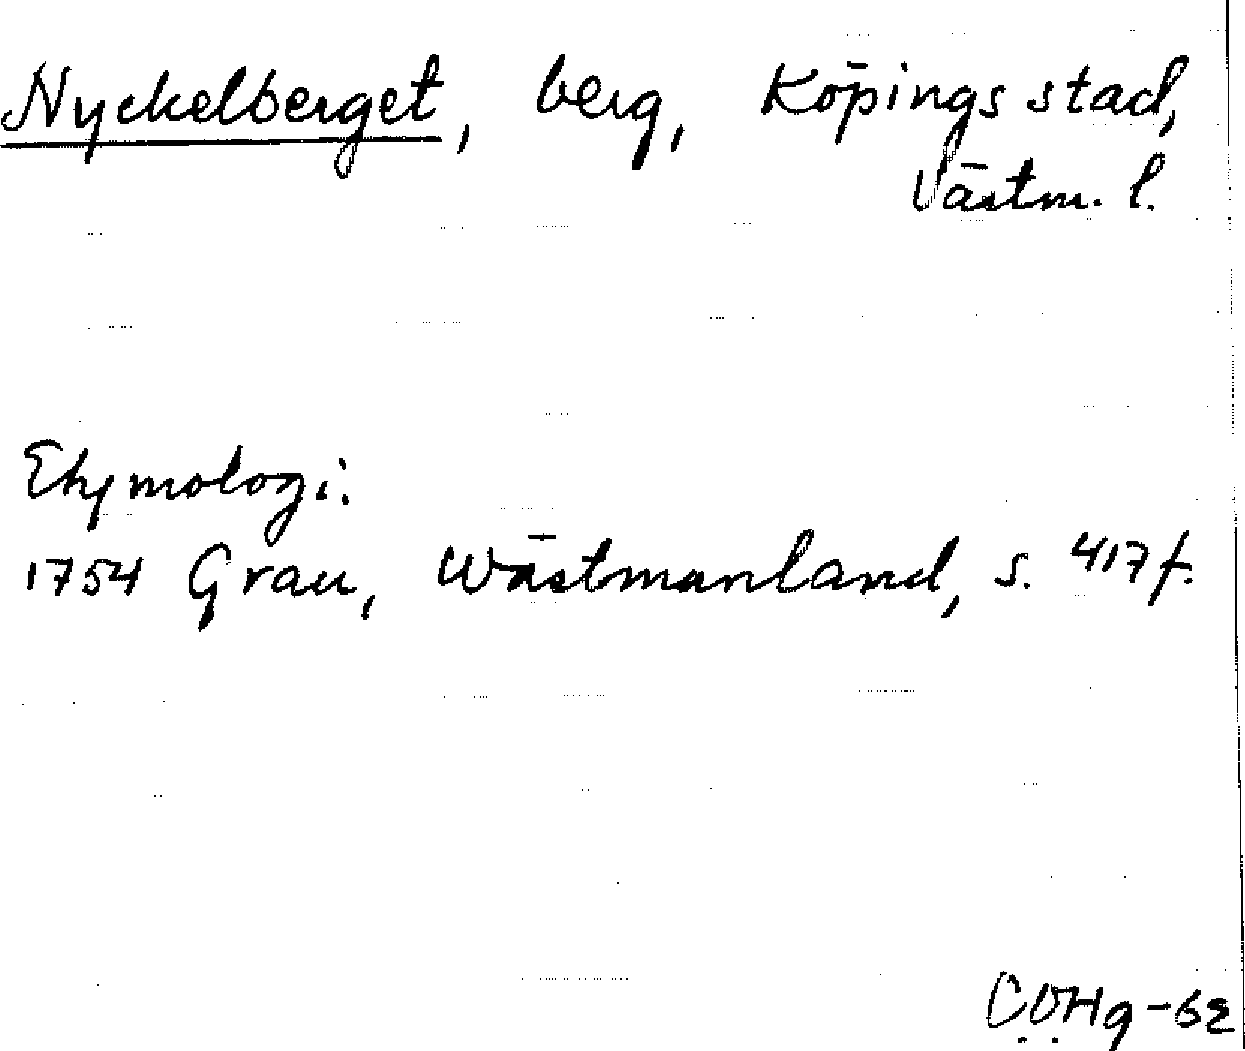 Nyckelberget, berg, Köpings stad,
Västm. l.
Etymologi:
1754 Grau, Wästmanland, s. 417 f.
COHg-62